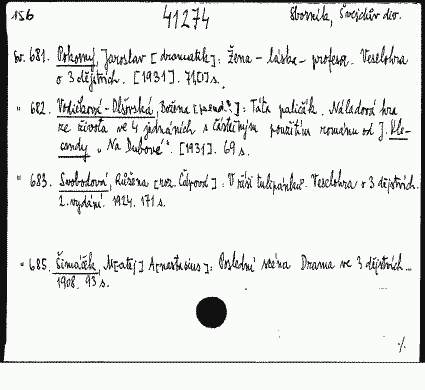 156 41274 Sborník, Švejdův div.
Sv. 681. Pokorný, Jaroslav [dramatik]: Žena - láska - profesor. Veselohra
o 3 dějstvích. [1931]. 71[1] s.
" 682. Vodičková-Olšovská, Božena [pseud.?]: Táta paličák. Náladová hra
ze života ve 4 jednáních s částečným použitím románu od J. Kle-
candy „Na Dubové". [1931]. 69 s.
" 683. Svobodová, Růžena [roz. Čápová]: V říši tulipánků. Veselohra o 3 dějstvích.
2. vydání. 1924. 171 s.
" 685. Šimáček, M[atěj] A[nastasius]: Poslední scéna Drama ve 3 dějstvích...
1908. 93 s.
./.